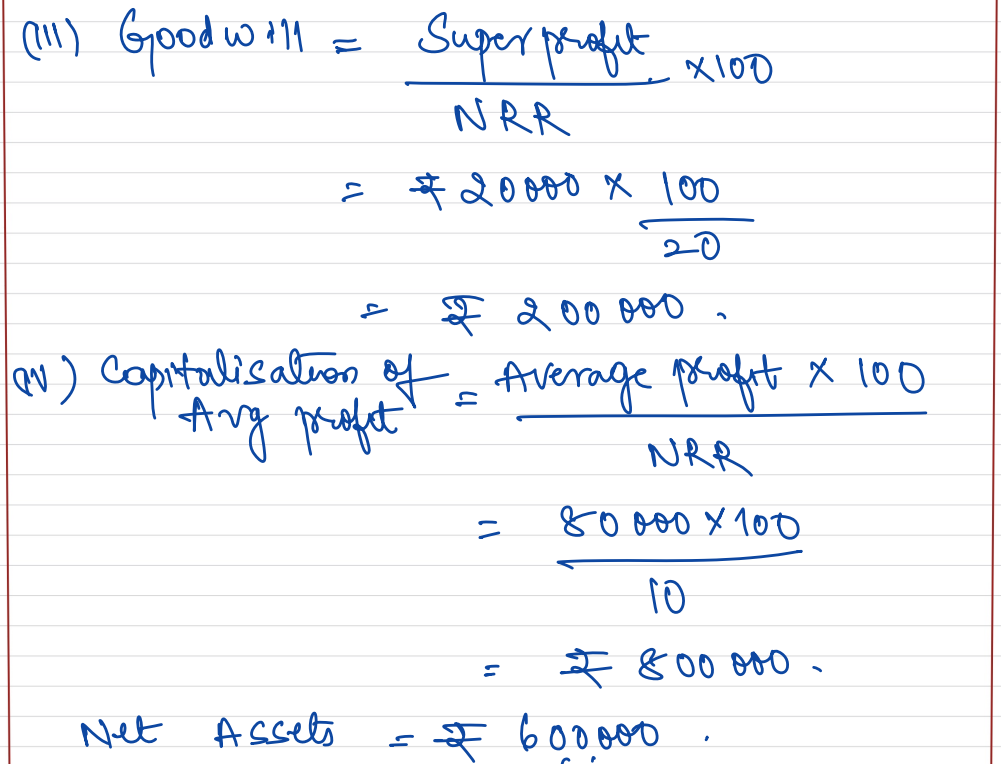 (III) Goodwill = Super profit / NRR ×100
= ₹ 20000 × 100 / 20
= ₹ 200000.
(IV) Capitalisation of Avg profit = Average profit × 100 / NRR
= 80000 × 100 / 10
= ₹ 800000.
Net Assets = ₹ 600000.